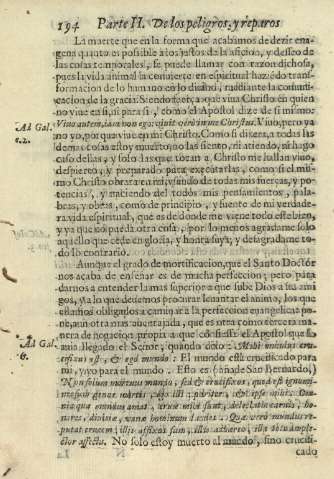 194 Parte II. De los peligros, y reparos
La muerte que en la forma que acabamos de dezir ena-
gena quanto es possible a los justos de la aficion, y desseo de
las cosas temporales, se puede llamar con razon dichosa,
pues la vida animal la conuierte en espiritual haziédo trans-
formacion de lo humano en lo diuino, mediante la comuni-
cacion de la gracia. Siendo fuerça que viua Christo en quien
no viue en si, ni para si, como el Apostol dize de si mismo:
Viuo autem, iam non ego, viuit verò in me Christus. Viuo, pero ya
no yo, porque viue en mi Christo. Como si dixera, a todas las
demas cosas estoy muerto, no las siento, ni atiendo, ni hago
caso dellas, y solo las que tocan a Christo me hallan viuo,
despierto, y preparado para executarlas, como si el mis-
mo Christo obrara en mi, siendo de todas mis fuerças, y po-
tencias, y naciendo del todos mis pensamientos, pala-
bras, y obras, como de principio, y fuente de mi verdade-
ra vida espiritual, que es de donde me viene todo este bien,
y ya que no pueda otra cosa, por lo menos agradame solo
aquello que cede en gloria, y honra suya, y desagradame to-
do lo contrario.
Aunque el grado de mortificacion, que el Santo Doctor
nos acaba de enseñar es de mucha perfeccion, pero para
darnos a entender la mas superior a que sube Dios a sus ami-
gos, y a lo que deuemos procurar leuantar el animo, los que
estamos obligados a caminar a la perfeccion euangelica po-
ne, aun otra mas auentajada, que es otra como tercera ma-
nera de negacion propia a que confiessa el Apostol que le
auia llegado el Señor, quando dixo: Mihi mundus cru-
cifixus est, & ego mundo: El mundo està crucificado para
mi, y yo para el mundo. Esto es (añade San Bernardo,)
Non solum mortuus mundo, sed & crucifixus, quod est ignomi-
niosum genus mortis, ego illi pariter, & ipse mihi. Om-
nia quæ mundus amat, crux mihi sunt, delectatio carnis, ho-
nores, diuitiæ, vanæ hominum laudes. Quæ verò mundus re-
putat crucem, illis affixus sum, illis adhæreo, illa toto ample-
ctor affectu. No solo estoy muerto al mundo, sino crucifi-
cado
Ad Gal.
c. 2.
Ad Gal.
6.